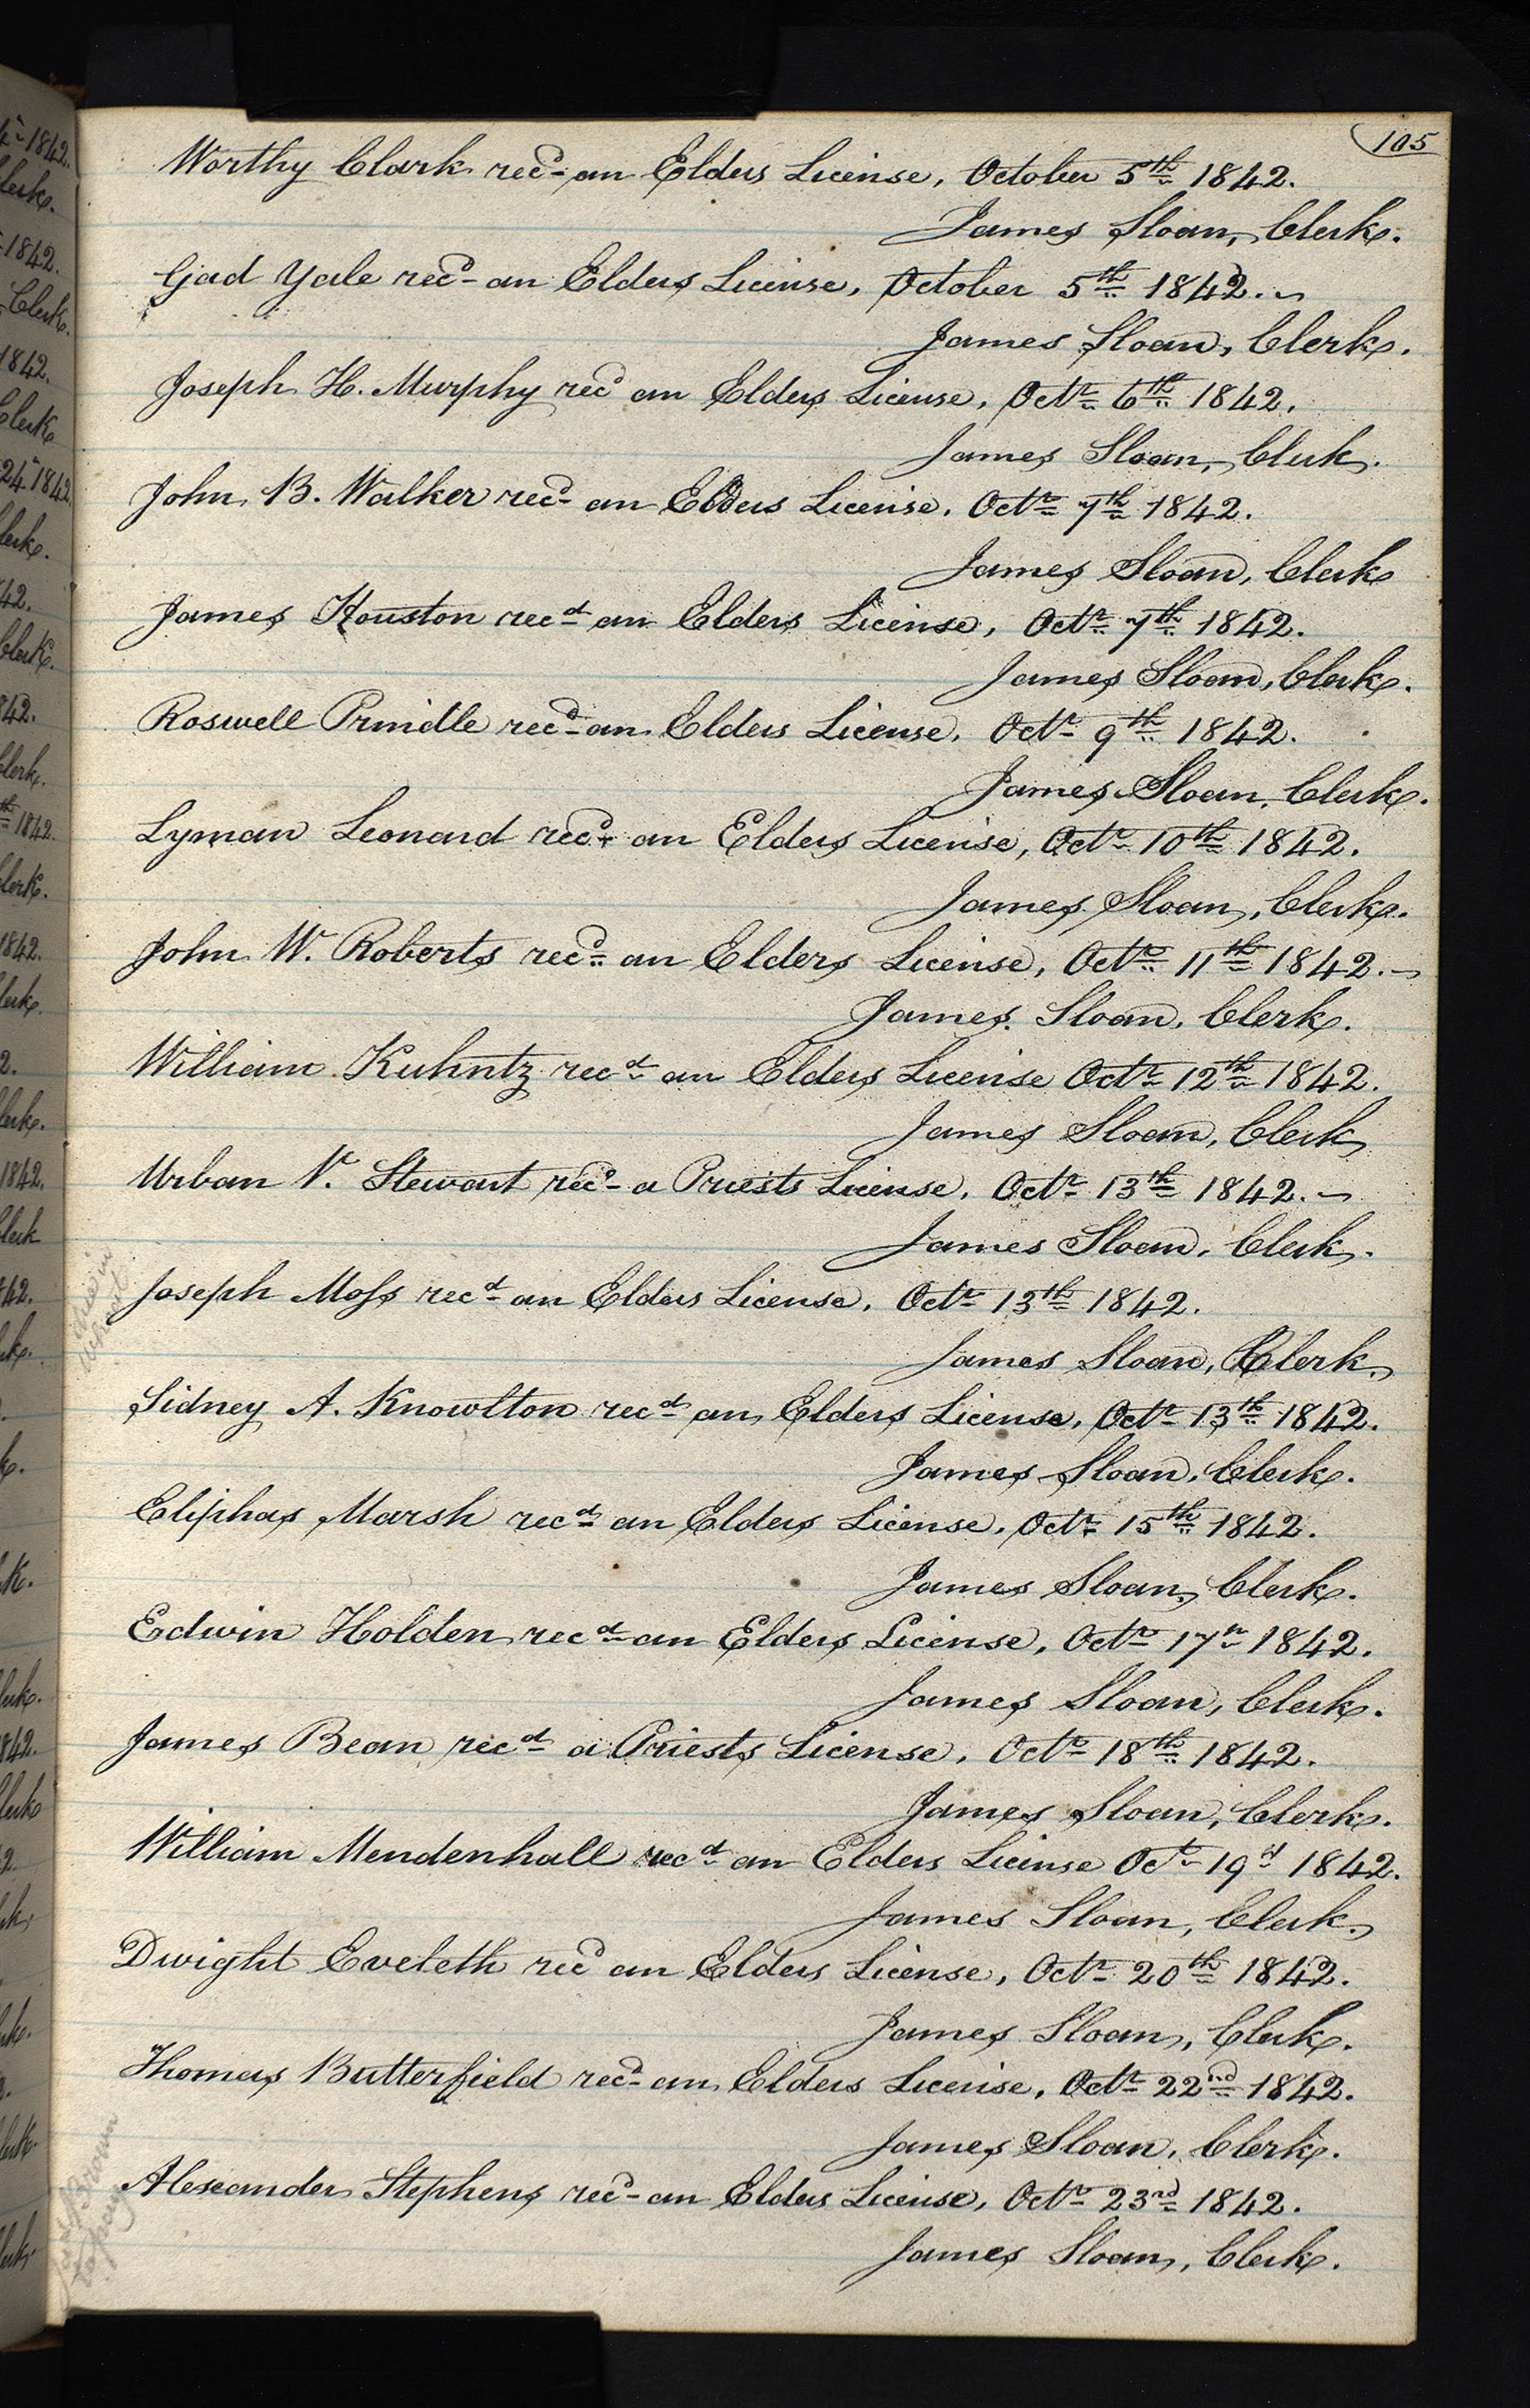 105
Worthy Clark recd an Elders License, October 5th 1842.
James Sloan, Clerk.
Gad Yale recd an Elders License, October 5th 1842.
James Sloan, Clerk.
Joseph H. Murphy recd an Elders License, Octr 6th 1842.
James Sloan, Clerk.
John B. Walker recd an Elders License. Octr 7th 1842.
James Sloan, Clerk
James Houston recd an Elders License, Octr 7th 1842.
James Sloan, Clerk.
Roswell Prindle recd an Elders License. Octr 9th 1842.
James Sloan, Clerk.
Lyman Leonard recd an Elders License, Octr 10th 1842.
James Sloan, Clerk.
John W. Roberts recd an Elders License, Octr 11th 1842.
James Sloan, Clerk.
William Kuhntz recd an Elders License Octr 12th 1842.
James Sloan, Clerk
Urban V. Stewart recd a Priests License. Octr 13th 1842.
James Sloan, Clerk.
Joseph Moss recd an Elders License, Octr 13th 1842.
James Sloan, Clerk.
Sidney A. Knowlton recd an Elders License, Octr 13th 1842.
James Sloan, Clerk.
Eliphas Marsh recd an Elders License, Octr 15th 1842.
James Sloan, Clerk.
Edwin Holden recd an Elders License, Octr 17th 1842.
James Sloan, Clerk.
James Bean recd a Priests License, Octr 18th 1842.
James Sloan, Clerk.
William Mendenhall recd an Elders License Octr 19d 1842.
James Sloan, Clerk.
Dwight Eveleth recd an Elders License, Octr 20th 1842.
James Sloan, Clerk.
Thomas Butterfield recd an Elders License, Octr 22nd 1842.
James Sloan, Clerk.
Alexander Stephens recd an Elders License, Octr 23rd 1842.
James Sloan, Clerk.